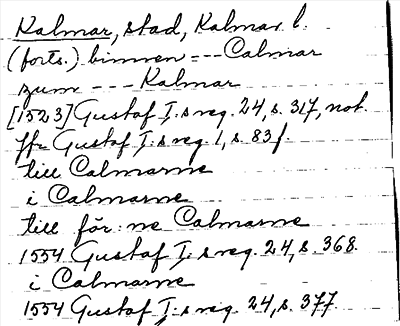 Kalmar, stad, Kalmar l.
(forts.) binnen --- Calmar
zum --- Kalmar
[1523] Gustaf I:s reg. 24, s. 317, not.
ff= Gustaf I:s reg. 1, s. 83 f.
till Calmarne
i Calmarne
till för:ne Calmarne
1554 Gustaf I:s reg. 24, s. 368.
i Calmarne
1554 Gustaf I:s reg. 24, s. 377.